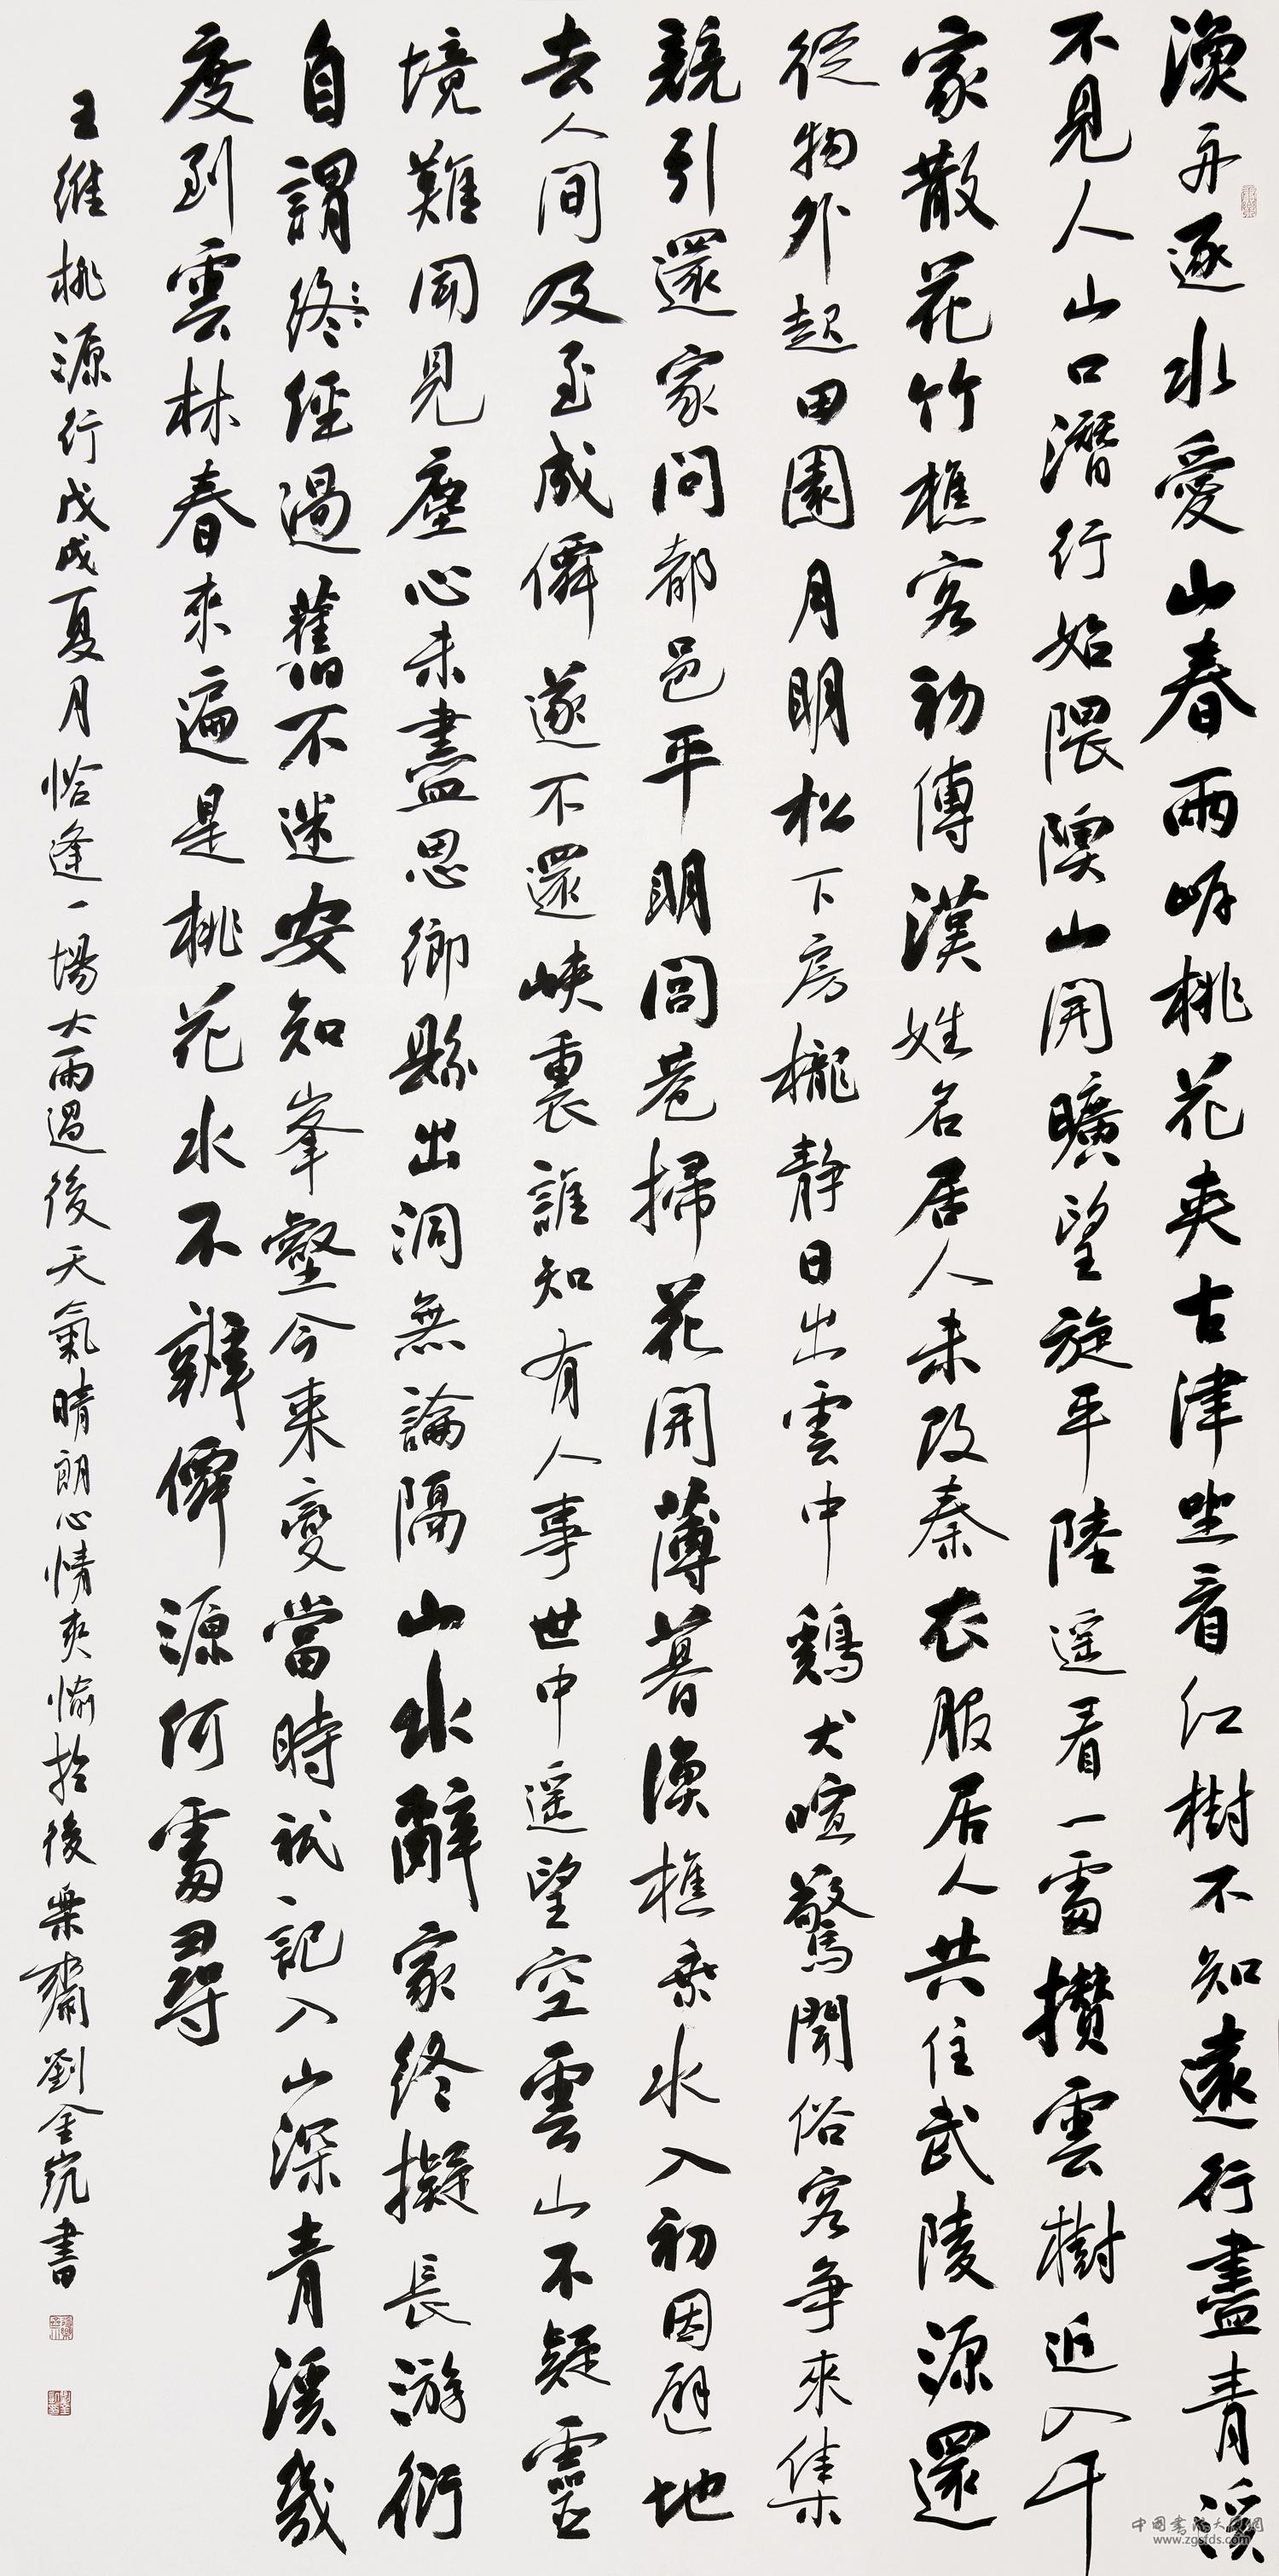 漁舟逐水愛山春兩岸桃花夾古津坐看紅樹不知遠行盡青溪
不見人山口潛行始隈隩山開曠望旋平陸遥看一處攢雲樹近入千
家散花竹樵客初傳漢姓名居人未改秦衣服居人共住武陵源還
從物外起田園月明松下房櫳靜日出雲中鷄犬喧驚聞俗客争來集
競引還家問都邑平明閭巷掃花開薄暮漁樵乘水入初因避地
去人間及至成僊遂不還峽裏誰知有人事世中遥望空雲山不疑靈
境難聞見塵心未盡思鄉縣出洞無論隔山水辭家終擬長游衍
自謂終經過舊不迷安知峯壑今来變當時祇記入山深青溪幾
度到雲林春來遍是桃花水不辨僊源何處尋
王維桃源行戊戌夏月恰逢一場大雨過後天氣晴朗心情爽愉於後樂齋劉金凱書
www.zgsfds.com